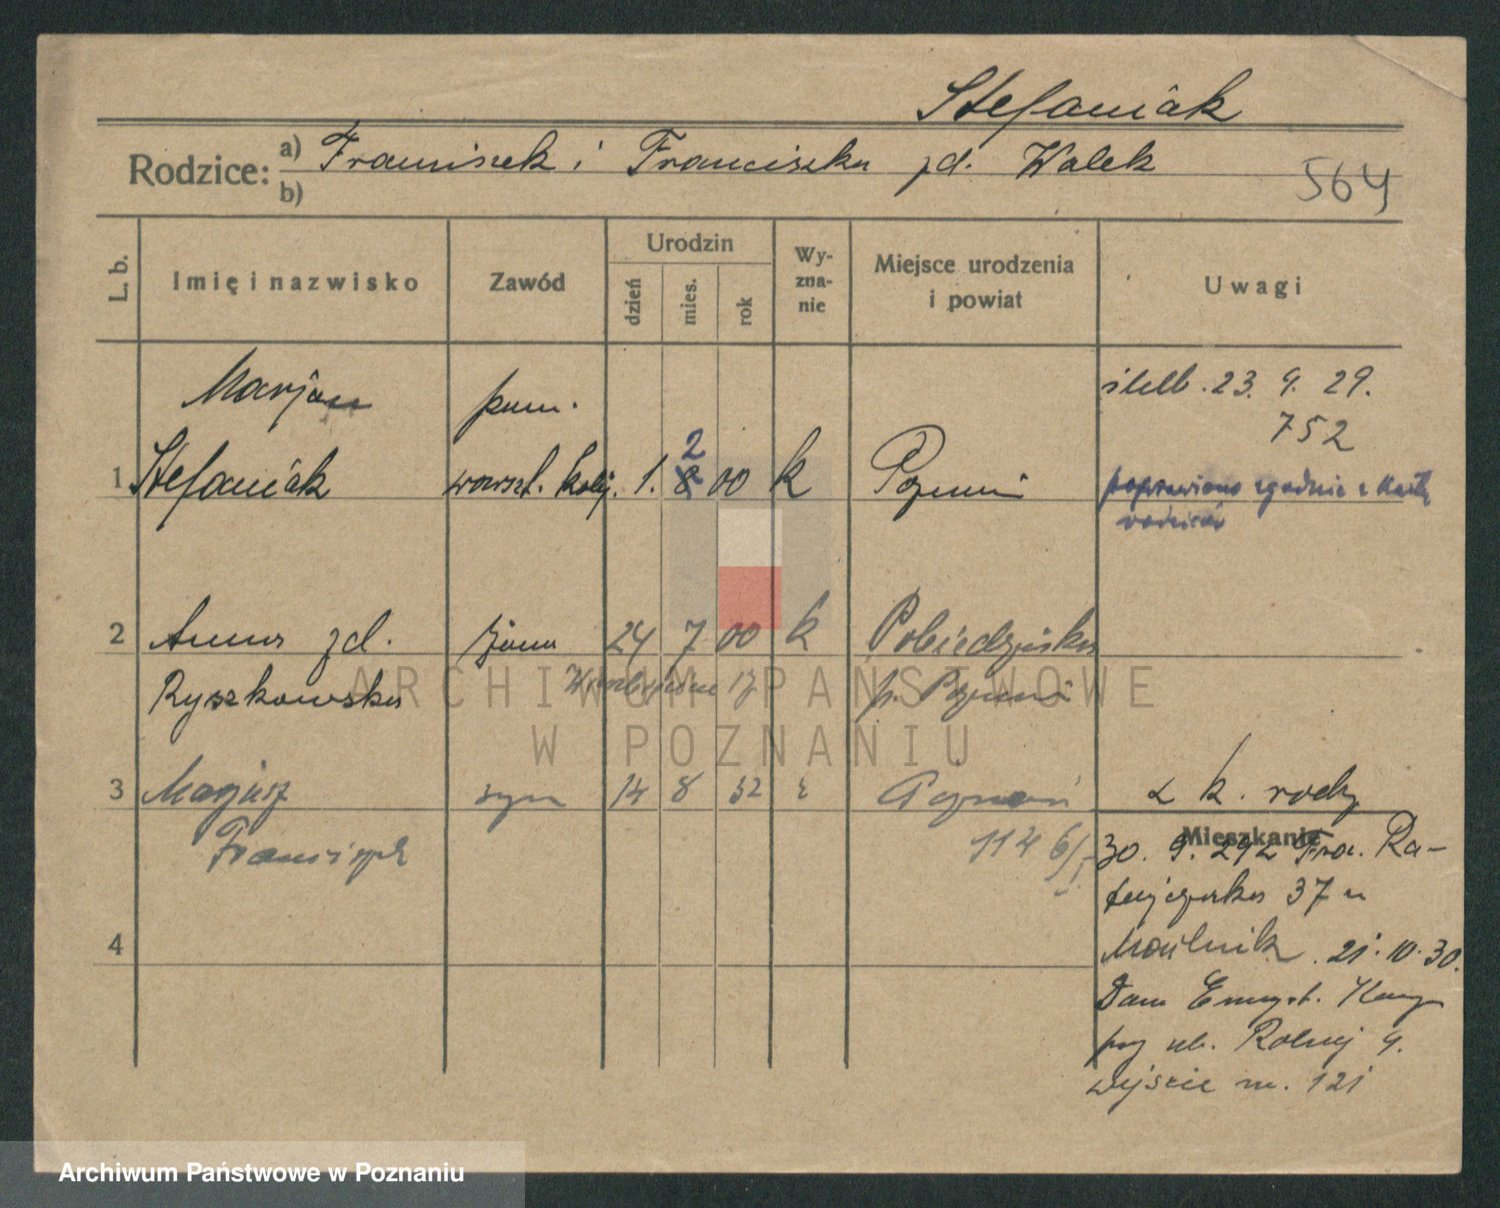 Stefaniak
Rodzice: a) Franciszek i Franciszka zd. Walek
b)
564
L. b.
Imię i nazwisko
Zawód
Urodzin
dzień
mies.
rok
Wy-
zna-
nie
Miejsce urodzenia
i powiat
Uwagi
Marjan pom. 23. 9. 29.
752
2
1 Stefaniak warszt. kolej. 1. 8 00 k Poznań poprawiono zgodnie z kartą
rodziców
2 Anna zd. żona 24 7 00 k Pobiedziska
Ryszkowska 17 p. Poznań
3 Marjusz syn 14 8 32 Poznań k. rodz
Franciszek 114 6/
Mieszkanie
30. 9. 29 Fra. Ra-
tajczaka 37 u
21. 10. 30.
4
Dom Emeryt.
przy ul. Rolnej 9.
wejście m. 121
ARCHIWUM PAŃSTWOWE
W POZNANIU
Archiwum Państwowe w Poznaniu